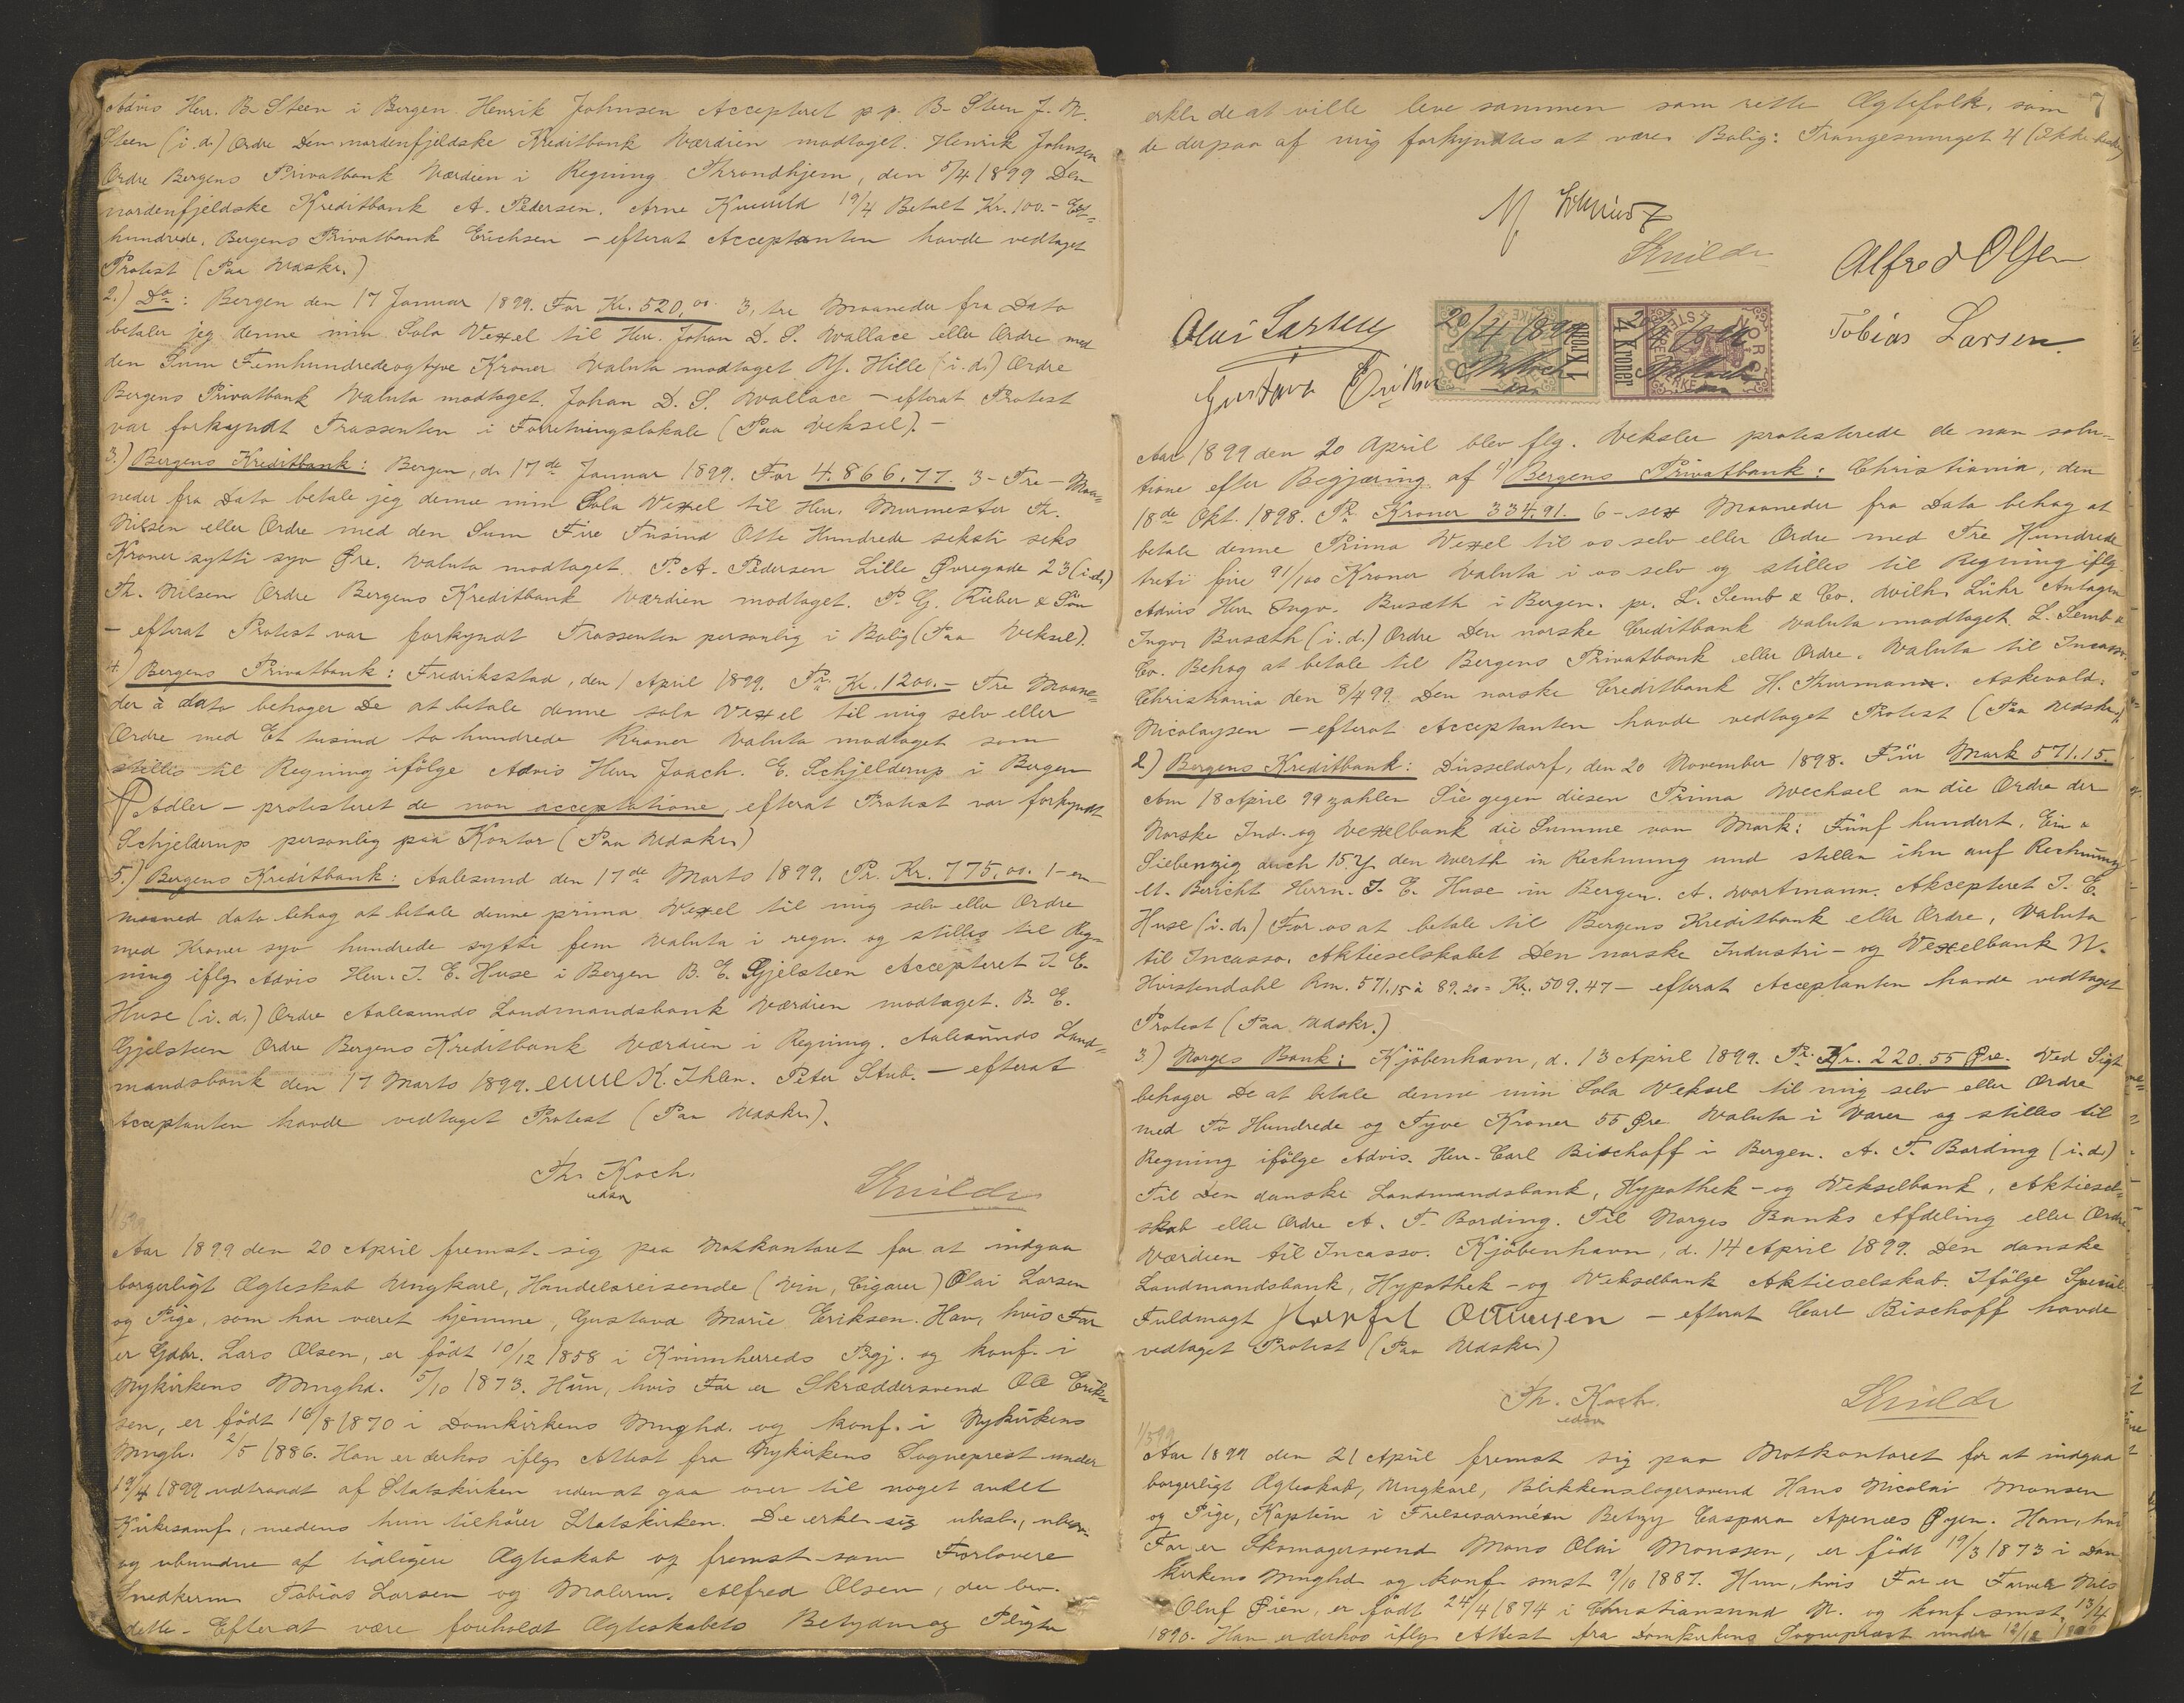 Advis Herr. B. Steen i Bergen. Henrik Johnsen Accepteret p.p. B. Steen J. N.
Steen (i.d.) Ordre Den nordenfjeldske Kreditbank Værdien modtaget. Henrik Johnsen
Ordre Bergens Privatbank Værdien i Regning. Throndhjem, den 5/4 1899 Den
nordenfjeldske Kreditbank A. Pedersen. Arne 19/4 Betalt Kr. 100.- Et-
hundrede. Bergens Privatbank Erichsen - efterat Acceptanten havde vedtaget
Protest (Paa Udskr.)
2.) Do: Bergen den 17 Januar 1899. For Kr. 520,00. 3, tre Maaneder fra Dato
betaler jeg denne min Sola Vexel til Herr. Johan D. S. Wallace eller Ordre med
den Sum Femhundredeogtyve Kroner Valuta modtaget M. Hille (i.d.) Ordre
Bergens Privatbank Valuta modtaget. Johan D. S. Wallace - efterat Protest
var forkyndt Trassenten i Forretningslokale (Paa Veksel). -
3.) Bergens Kreditbank: Bergen, d. 17de Januar 1899. For 4.866.77. 3 - Tre - Maa-
neder fra Dato betale jeg denne min Sola Vexel til Herr. Murmester Th.
Nilsen eller Ordre med den Sum Fire Tusind Otte Hundrede seksti seks
Kroner sytti syv Øre. Valuta modtaget. P. A. Pedersen Lille Øvregade 23 (i.d.)
Th. Nilsen Ordre Bergens Kreditbank Værdien modtaget. P. G. Rieber & Sön
- efterat Protest var forkyndt Trassenten personlig i Bolig (Paa Veksel).
4.) Bergens Privatbank: Fredriksstad, den 1 April 1899. Pr. Kr. 1200.- Tre Maane-
der à dato behager De at betale denne sola Vexel til mig selv eller
Ordre med Et tusind to hundrede Kroner Valuta modtaget som
stilles til Regning ifölge Advis Herr Joach. E. Schjelderup i Bergen
P Adler - protesteret de non acceptatione, efterat Protest var forkyndt
Schjelderup personlig paa Kontor (Paa Udskr.)
5.) Bergens Kreditbank: Aalesund den 17de Marts 1899. Pr. Kr. 775,00. 1 - en
maaned dato behag at betale denne prima Vexel til mig selv eller Ordre
med Kroner syv hundrede sytti fem Valuta i regn. og stilles til Reg-
ning iflg. Advis Herr. J. E. Huse i Bergen B. E. Gjelsteen Accepteret J. E.
Huse (i.d.) Ordre Aalesunds Landmandsbank Værdien modtaget. B. E.
Gjelsteen Ordre Bergens Kreditbank Værdien i Regning. Aalesunds Land-
mandsbank den 17 Marts 1899. K. Ihlen. Peter Stub. - efterat
Acceptanten havde vedtaget Protest (Paa Udskr.).
Th. Koch. Knilde
edsv
1/5 99
Aar 1899 den 20 April fremst. sig paa Notkontoret for at indgaa
borgerligt Ægteskab Ungkarl, Handelsreisende (Vin, Cigarer) Olai Larsen
og Pige, som har været hjemme, Gustava Marie Eriksen. Han, hvis Far
er Gdbr. Lars Olsen, er født 10/12 1858 i Kvinnherreds Prgj. og konf. i
Nykirkens Mnghd. 5/10 1873. Hun, hvis Far er Skræddersvend Ole Erik-
sen, er født 16/8 1870 i Domkirkens Mnghd. og konf. i Nykirkens
Mngh. 2/5 1886. Han er derhos iflg. Attest fra Nykirkens Sogneprest under
19/4 1899 udtraadt af Statskirken uden at gaa over til noget andet
Kirkesamf., medens hun tilhörer Statskirken. De erkl. sig ubesl.,
og ubundne af tidligere Ægteskab og fremst. som Forlovere
Snedkerm. Tobias Larsen og Malerm. Alfred Olsen, der bev.
dette. Efterat være foreholdt Ægteskabets Betydn. og Pligter
7
erkl. de at ville leve sammen som rette Ægtefolk, som
de derpaa af mig forkyndtes at være. Bolig: Trangesmuget 4 (Ikke
M.
Knilde
Alfred Olsen
Olai Larsen
20/4 1899
1 Kron
4 Kroner
NORGE
Tobias Larsen
Gustava Eriksen
Aar 1899 den 20 April blev flg. Veksler protesterede de non solu-
tione efter Begjæring af 1) Bergens Privatbank: Christiania, den
18de Okt. 1898. Pr. Kroner 334.91. 6 - sex Maaneder fra Dato behag at
betale denne Prima Vexel til os selv eller Ordre med Tre Hundrede
treti fire 91/100 Kroner Valuta i os selv og stilles til Regning iflg
Advis Herr Ingv. Busæth i Bergen. pr. L. Semb & Co. Wilh. Lühr Antagen
Ingv. Busæth (i.d.) Ordre Den norske Creditbank Valuta modtaget. L. Semb &
Co. Behag at betale til Bergens Privatbank eller Ordre. Valuta til Incasso.
Christiania den 8/4 99. Den norske Creditbank H. Thurmann. Askevold.
Nicolaysen - efterat Acceptanten havde vedtaget Protest (Paa Udskr.)
2) Bergens Kreditbank: Düsseldorf, den 20 November 1898. Für Mark 571.15.
Am 18 April 99 zahlen Sie gegen diesen Prima Wechsel an die Ordre der
Norske Ind. og Vexelbank die Summe von Mark: Fünf hundert, Ein &
Siebenzig auch 15 den Werth in Rechnung und stellen ihn auf Rechnung
lt. Bericht Herrn. J. E. Huse in Bergen. A. Wortmann. Akcepteret J. E.
Huse (i.d.) For os at betale til Bergens Kreditbank eller Ordre, Valuta
til Incasso. Aktieselskabet Den norske Industri- og Vexelbank N.
Hvistendahl Rm. 571.15 à 89.20 = Kr. 509.47 - efterat Acceptanten havde vedtaget
Protest (Paa Udskr.)
3.) Norges Bank: Kjöbenhavn, d. 13 April 1899. Pr. Kr. 220.55 Øre. Ved Sigt
behager De at betale denne min Sola Veksel til mig selv eller Ordre
med To Hundrede og Tyve Kroner 55 Øre Valuta i Varer og stilles til
Regning ifölge Advis. Herr. Carl Bischoff i Bergen. A. T. Bording (i.d.)
Til Den danske Landmandsbank, Hypothek- og Vekselbank, Aktiesel-
skab eller Ordre A. T. Bording. Til Norges Banks Afdeling eller Ordre.
Værdien til Incasso. Kjöbenhavn, d. 14 April 1899. Den danske
Landmandsbank, Hypothek- og Vekselbank Aktieselskab. Ifölge Special
Fuldmagt - efterat Carl Bischoff havde
vedtaget Protest (Paa Udskr.)
Th. Koch. Knilde
edsv
1/5 99
Aar 1899 den 21 April fremst sig paa Notkontoret for at indgaa
borgerligt Ægteskab, Ungkarl, Blikkenslagersvend Hans Nicolai Monsen
og Pige, Kaptein i Frelsesarméen Betzy Caspara Apenæs Øyen. Han, hvis
Far er Skomagersvend Mons Olai Monssen, er födt 19/3 1873 i Dom
kirkens Mnghd og konf. smst 9/10 1887. Hun, hvis Far er Farver Nils
Oluf Øien, er födt 24/4 1874 i Christiansund N. og konf smst. 13/4
1890. Han er derhos iflg. Attest fra Domkirkens Sogneprest under